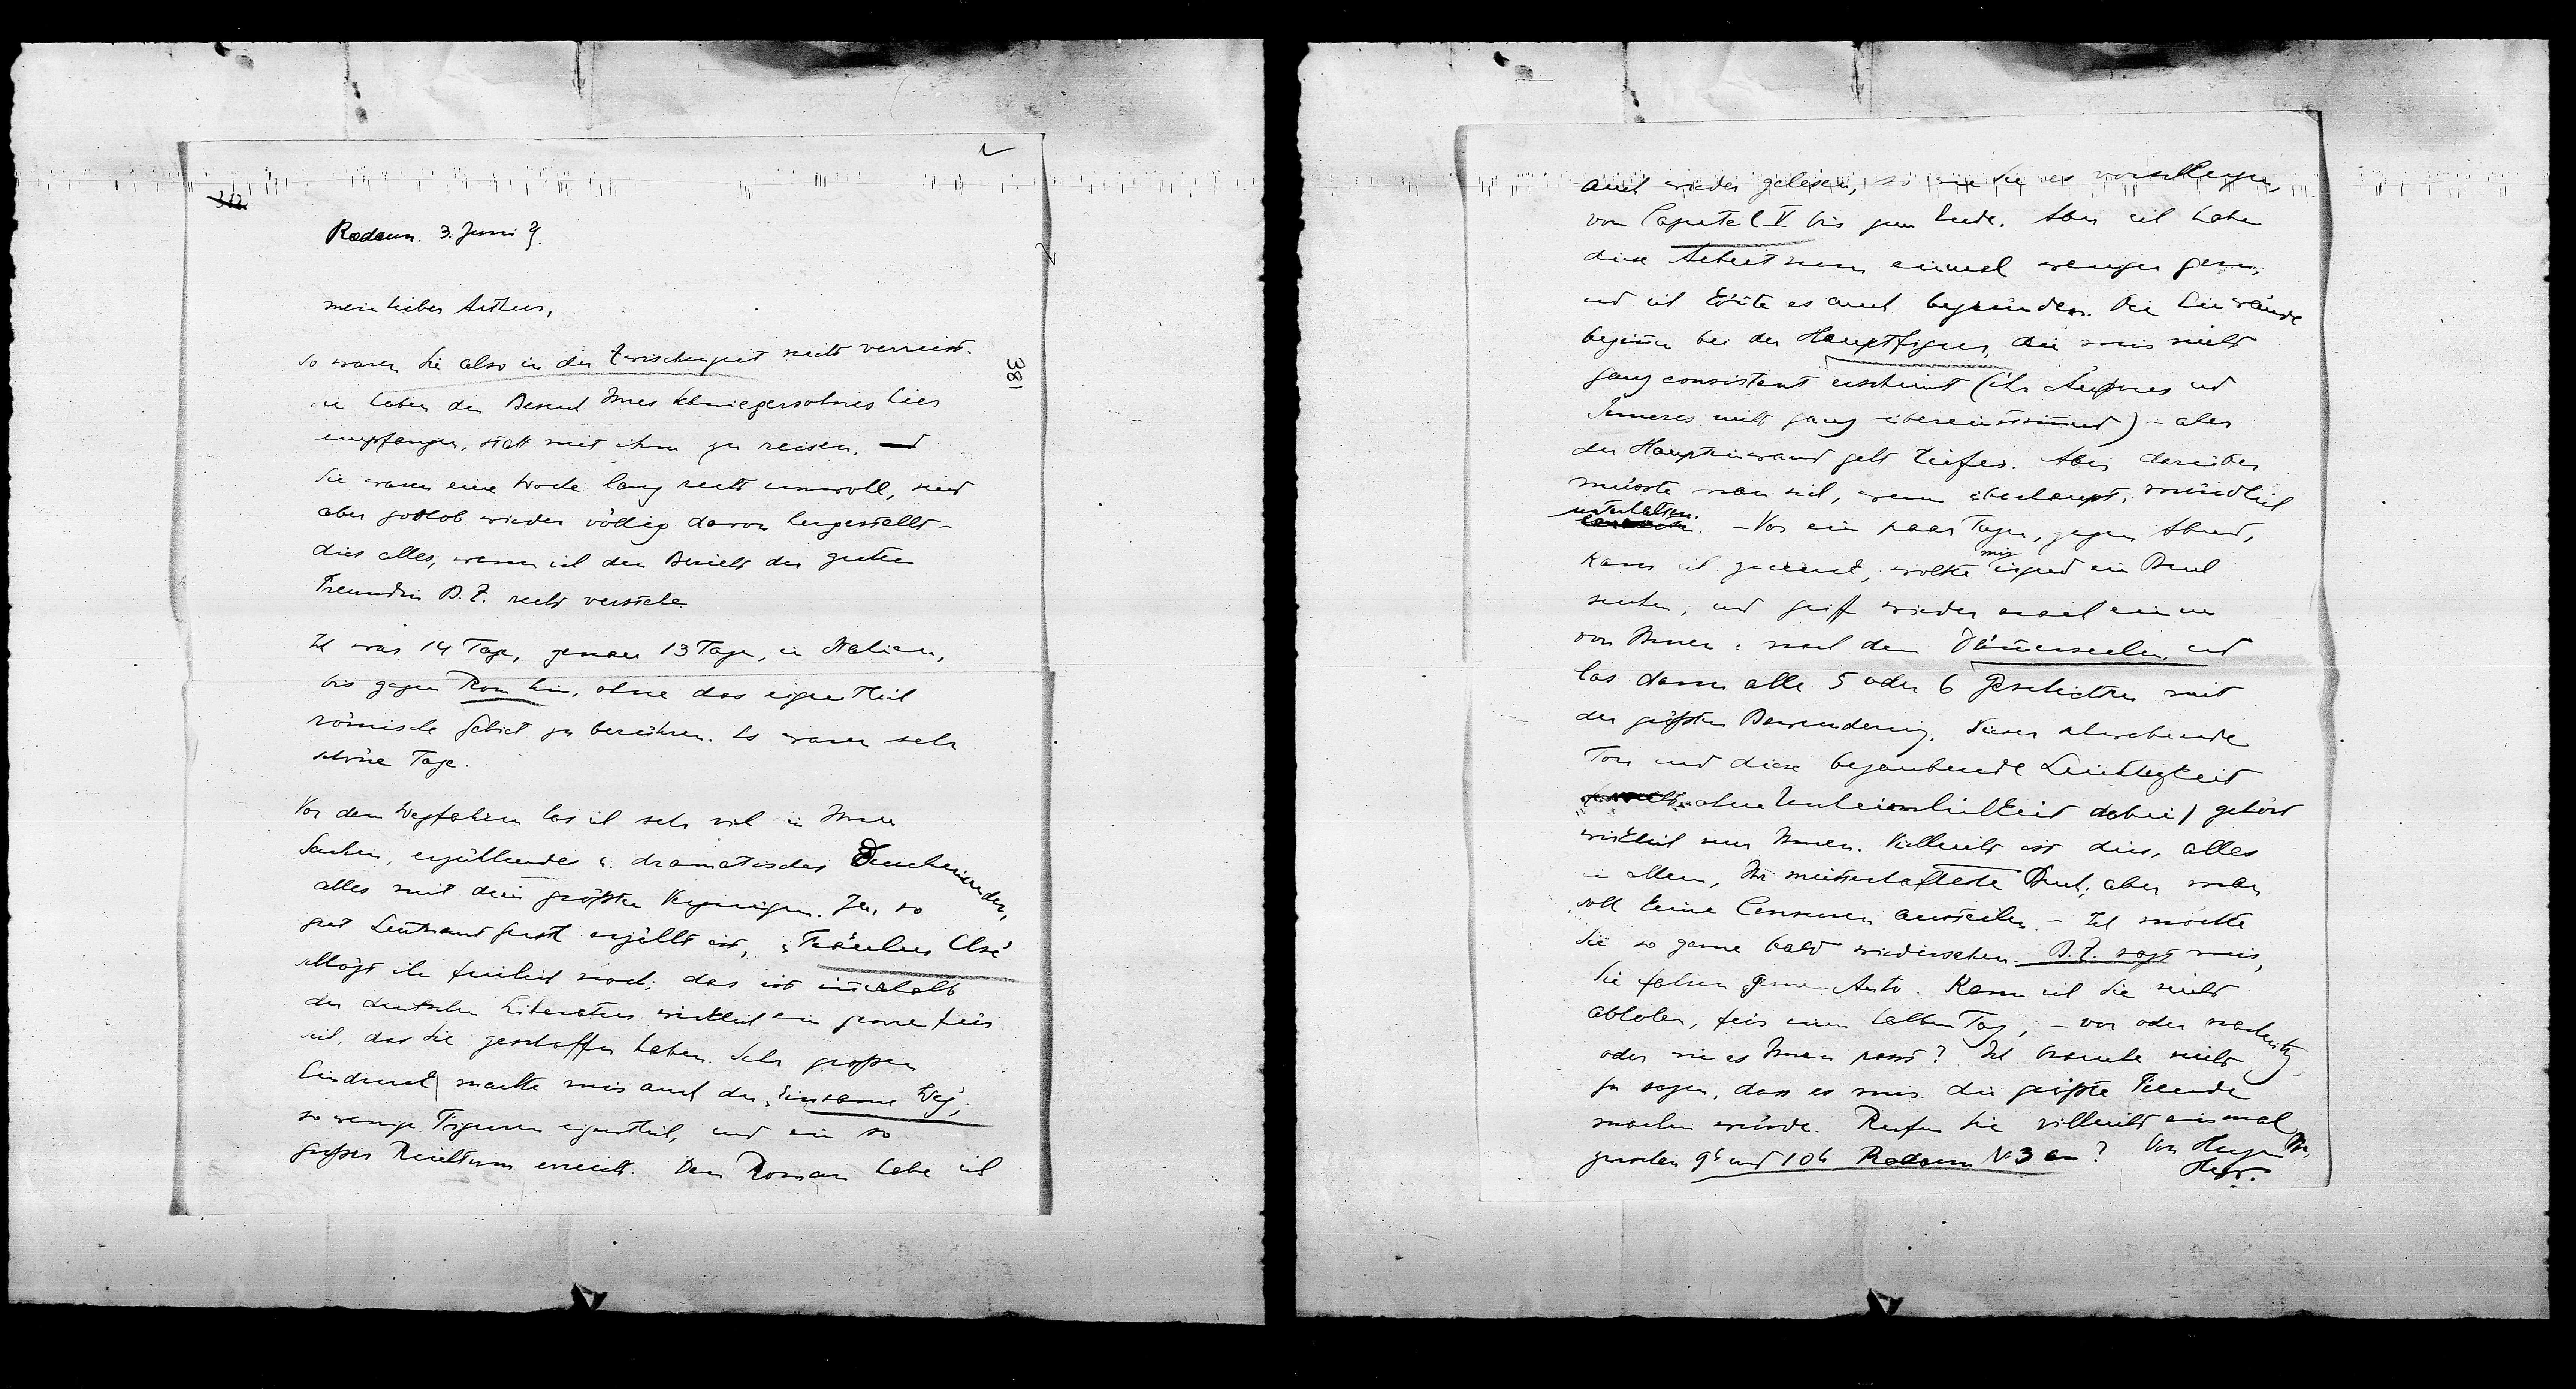 382
Rodaun. 3. Juni 29.
381
mein lieber Arthur,
so waren Sie also in der Zwischenzeit nicht verreist.
Sie haben den Besuch Ihres Schwiegersohnes hier
empfangen, statt mit ihm zu reisen, und
Sie waren eine Woche lang recht unwoll, sind
aber gottlob wieder völlig davon hergestellt –
dies alles, wenn ich den Bericht der guten
Freundin B. Z. recht verstehe.
Ich war 14 Tage, genau 13 Tage, in Italien,
bis gegen Rom hin, ohne das eigentlich
römische Gebiet zu berühren. Es waren sehr
schöne Tage.
Vor dem Wegfahren las ich sehr viel in Ihren
Sachen, erzählendes u. dramatisches Durcheinander,
alles mit dem größten Vergnügen. Ja, so
gut Leutnant Gustl erzählt ist, „Fräulein Else“
schlägt ihn freilich noch; das ist innerhalb
der deutschen Literatur wirklich ein genre für
sich, das Sie geschaffen haben. Sehr großen
Eindruck machte mir auch der „Einsame Weg“,
so wenige Figuren eigentlich, und ein so
großer Reichtum erreicht. Den Roman habe ich
auch wieder gelesen, so wie Sie es vorschlugen,
von Capitel V bis zum Ende. Aber ich habe
diese Arbeit nun einmal weniger gern,
und ich könnte es auch begründen. Die Einwände
beginnen bei der Hauptfigur, die mir nicht
ganz consistent erscheint (ihr Äußeres und
Inneres nicht ganz übereinstimmend) – aber
der Haupteinwand geht tiefer. Aber darüber
müsste man sich, wenn überhaupt, mündlich
unterhalten. – Vor ein paar Tagen, gegen Abend,
kam ich zurück, wollte mir irgend ein Buch
suchen, und griff wieder nach einem
von Ihnen: nach den Dämmerseelen, und
las dann alle 5 oder 6 Geschichten mit
der größten Bewunderung. Dieser schwebende
Ton und diese bezaubernde Leichtigkeit
ohne Unheimlichkeit dabei) gehört
wirklich nur Ihnen. Vielleicht ist dies, alles
in allem, Ihr meisterhaftestes Buch; aber man
soll keine Censuren austeilen. – Ich möchte
Sie so gerne bald wiedersehen. B. Z. sagt mir,
Sie fahren gerne Auto. Kann ich Sie nicht
abholen, für einen halben Tag, – vor oder nachmittag
oder wie es Ihnen passt? Ich brauche nicht
zu sagen, dass es mir die größte Freude
machen würde. Rufen Sie vielleicht einmal
zwischen 9h und 10h Rodaun No 3 an? Von Herzen Ihr,
Hugo.